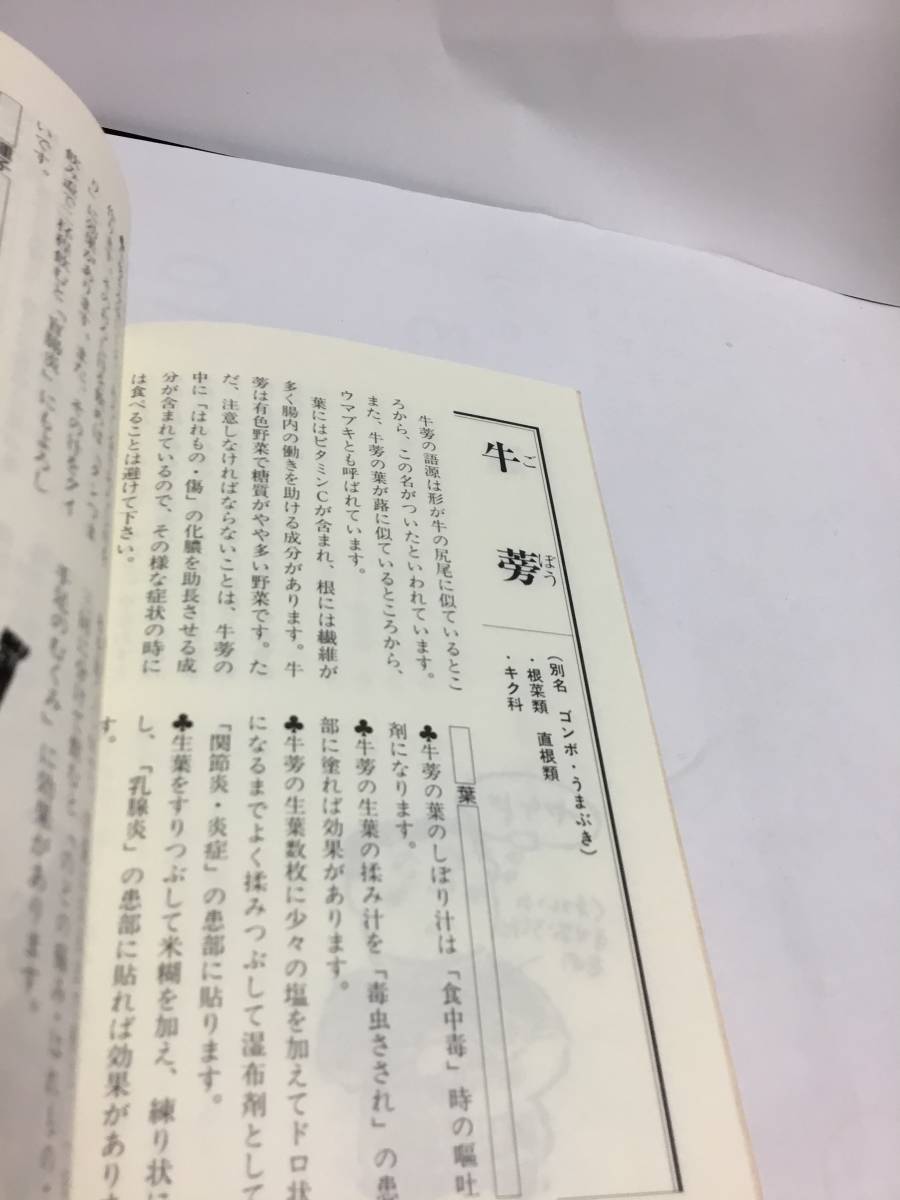 牛蒡
ごぼう
(別名 ゴンボ・うまぶき)
・根菜類 直根類
・キク科
牛蒡の語源は形が牛の尻尾に似ているとこ
ろから、この名がついたといわれています。
また、牛蒡の葉が蕗に似ているところから、
ウマブキとも呼ばれています。
葉にはビタミンCが含まれ、根には繊維が
多く腸内の働きを助ける成分があります。牛
蒡は有色野菜で糖質がやや多い野菜です。た
だ、注意しなければならないことは、牛蒡の
中に「はれもの・傷」の化膿を助長させる成
分が含まれているので、その様な症状の時に
は食べることは避けて下さい。
葉
♣牛蒡の葉のしぼり汁は「食中毒」時の嘔吐
剤になります。
♣牛蒡の生葉の揉み汁を「毒虫さされ」の患
部に塗れば効果があります。
♣牛蒡の生葉数枚に少々の塩を加えてドロ状
になるまでよく揉みつぶして湿布剤として
「関節炎・炎症」の患部に貼ります。
♣生葉をすりつぶして米糊を加え、練り状に
し、「乳腺炎」の患部に貼れば効果がありま
す。
「盲腸炎」にもよろし
いです。
手足のむくみ」に効果があります。